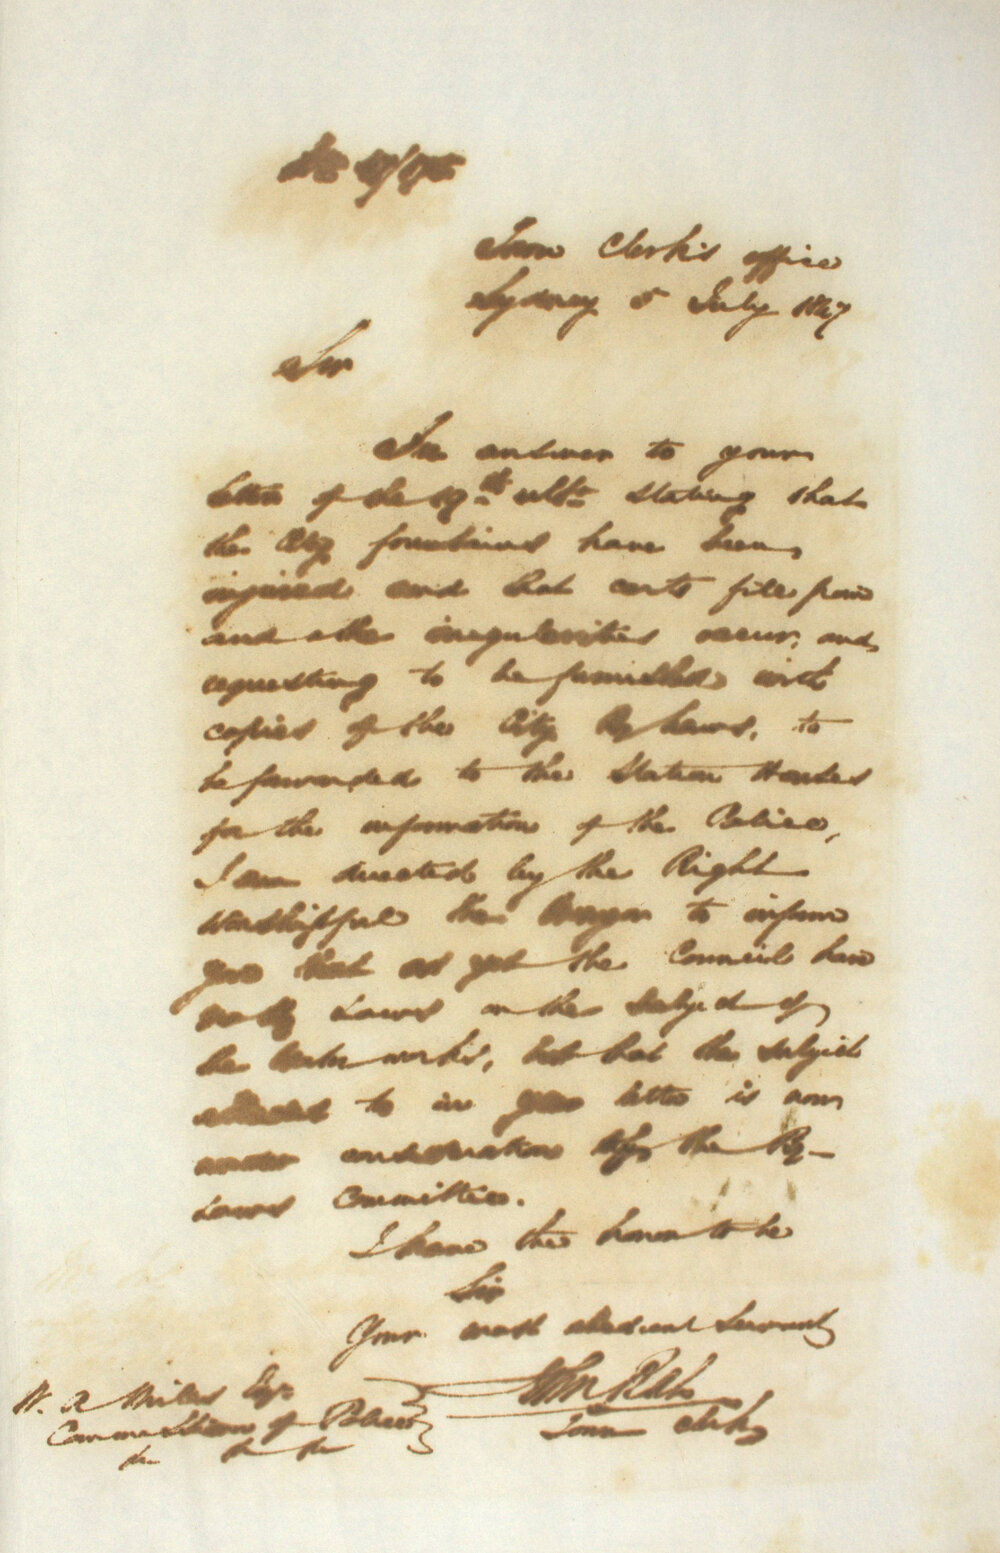 Town Clerk's office
Sydney 5 July 1847
Sir
In answer to your
letter of the 19th ulto stating that
the City fountains have been
injured and that carts fill from
and other irregularities occur, and
requesting to be furnished with
copies of the City By Laws, to
be forwarded to the Station Houses
for the information of the Police,
I am directed by the Right
Worshipful the Mayor to inform
you that as yet the Council have
no By Laws on the subject of
the Water works, but that the subject
alluded to in your letter is now
under consideration of the By-
Laws Committee.
I have the honor to be
Sir
Your most obedient Servant
John Rae
Town Clerk
W. A Miles Esqr
Commissioner of Police